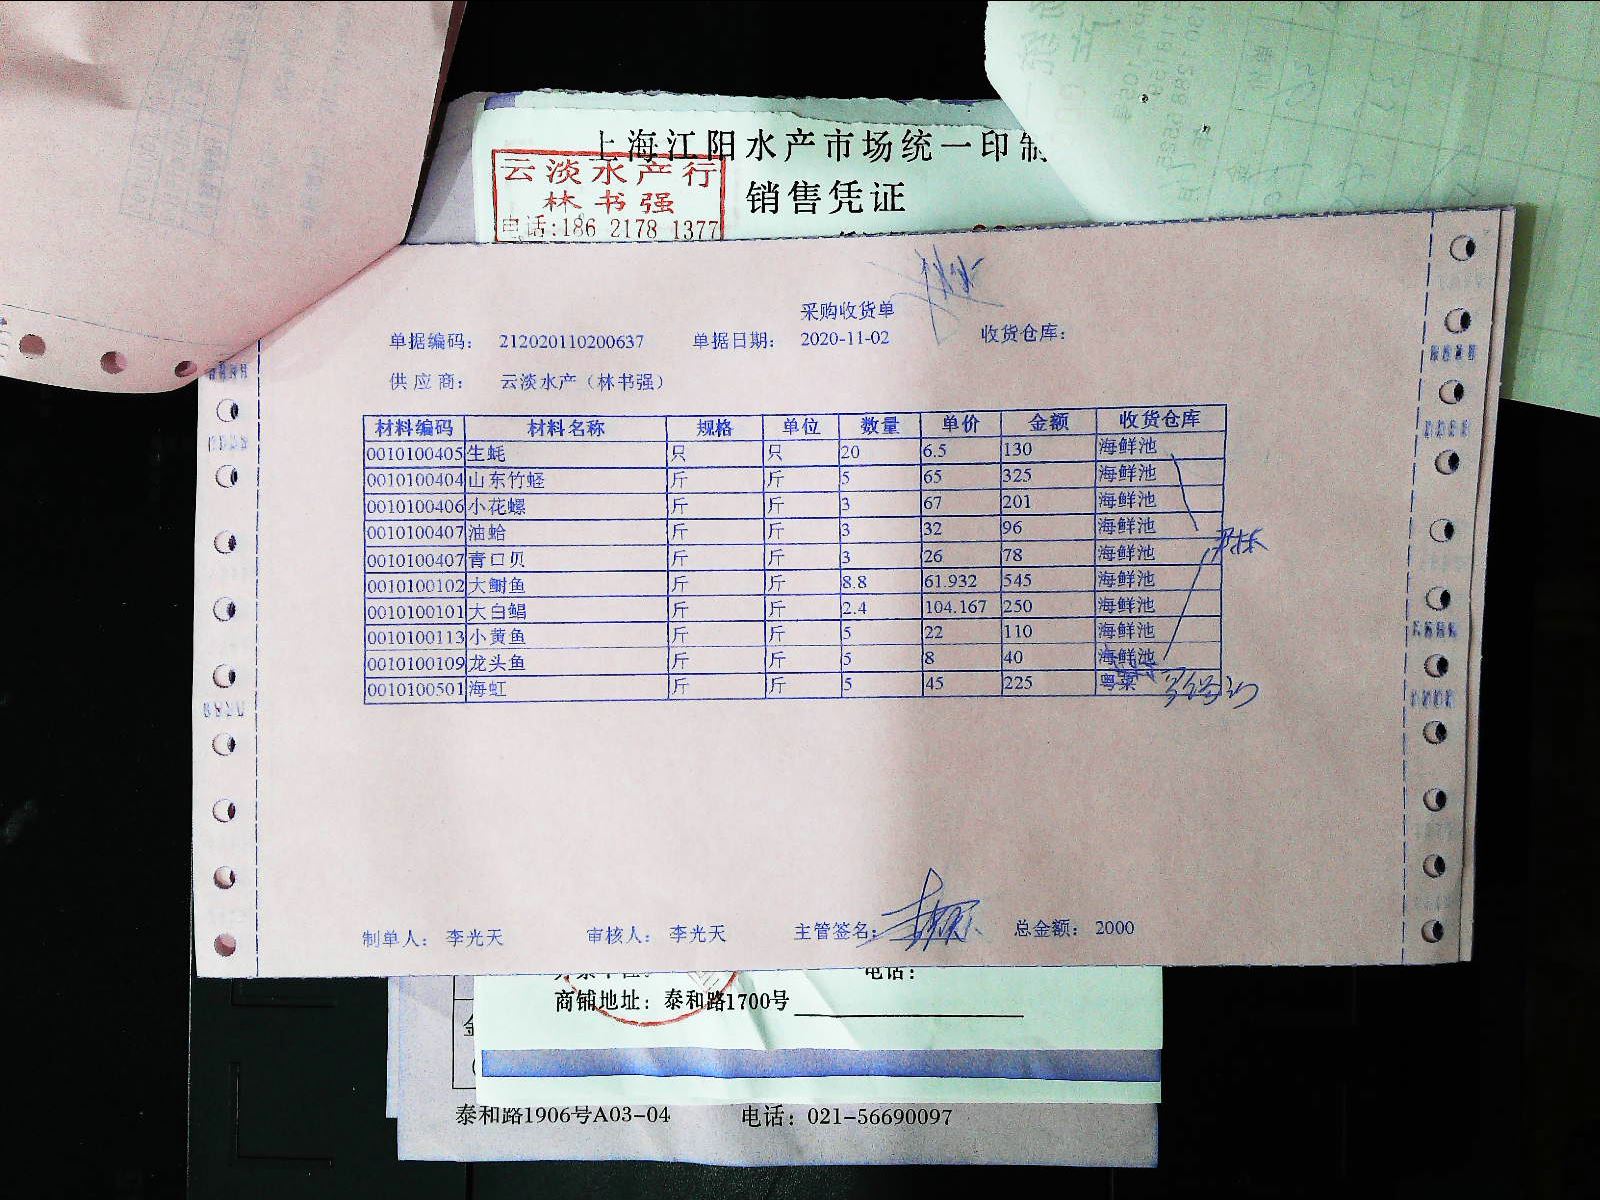 上海江阳水产市场统一印制
云淡水产行
林书强
电话:186 2178 1377
销售凭证
采购收货单
单据编码： 212020110200637 单据日期： 2020-11-02 收货仓库：
供应商： 云淡水产（林书强）
材料编码 材料名称 规格 单位 数量 单价 金额 收货仓库
0010100405 生蚝 只 只 20 6.5 130 海鲜池
0010100404 山东竹蛏 斤 斤 5 65 325 海鲜池
0010100406 小花螺 斤 斤 3 67 201 海鲜池
0010100407 油蛤 斤 斤 3 32 96 海鲜池
0010100407 青口贝 斤 斤 3 26 78 海鲜池
0010100102 大鲥鱼 斤 斤 8.8 61.932 545 海鲜池
0010100101 大白鲳 斤 斤 2.4 104.167 250 海鲜池
0010100113 小黄鱼 斤 斤 5 22 110 海鲜池
0010100109 龙头鱼 斤 斤 5 8 40 海鲜池
0010100501 海虹 斤 斤 5 45 225 粤菜
制单人： 李光天 审核人： 李光天 主管签名： 总金额： 2000
电话：
商铺地址：泰和路1700号
泰和路1906号A03-04 电话：021-56690097